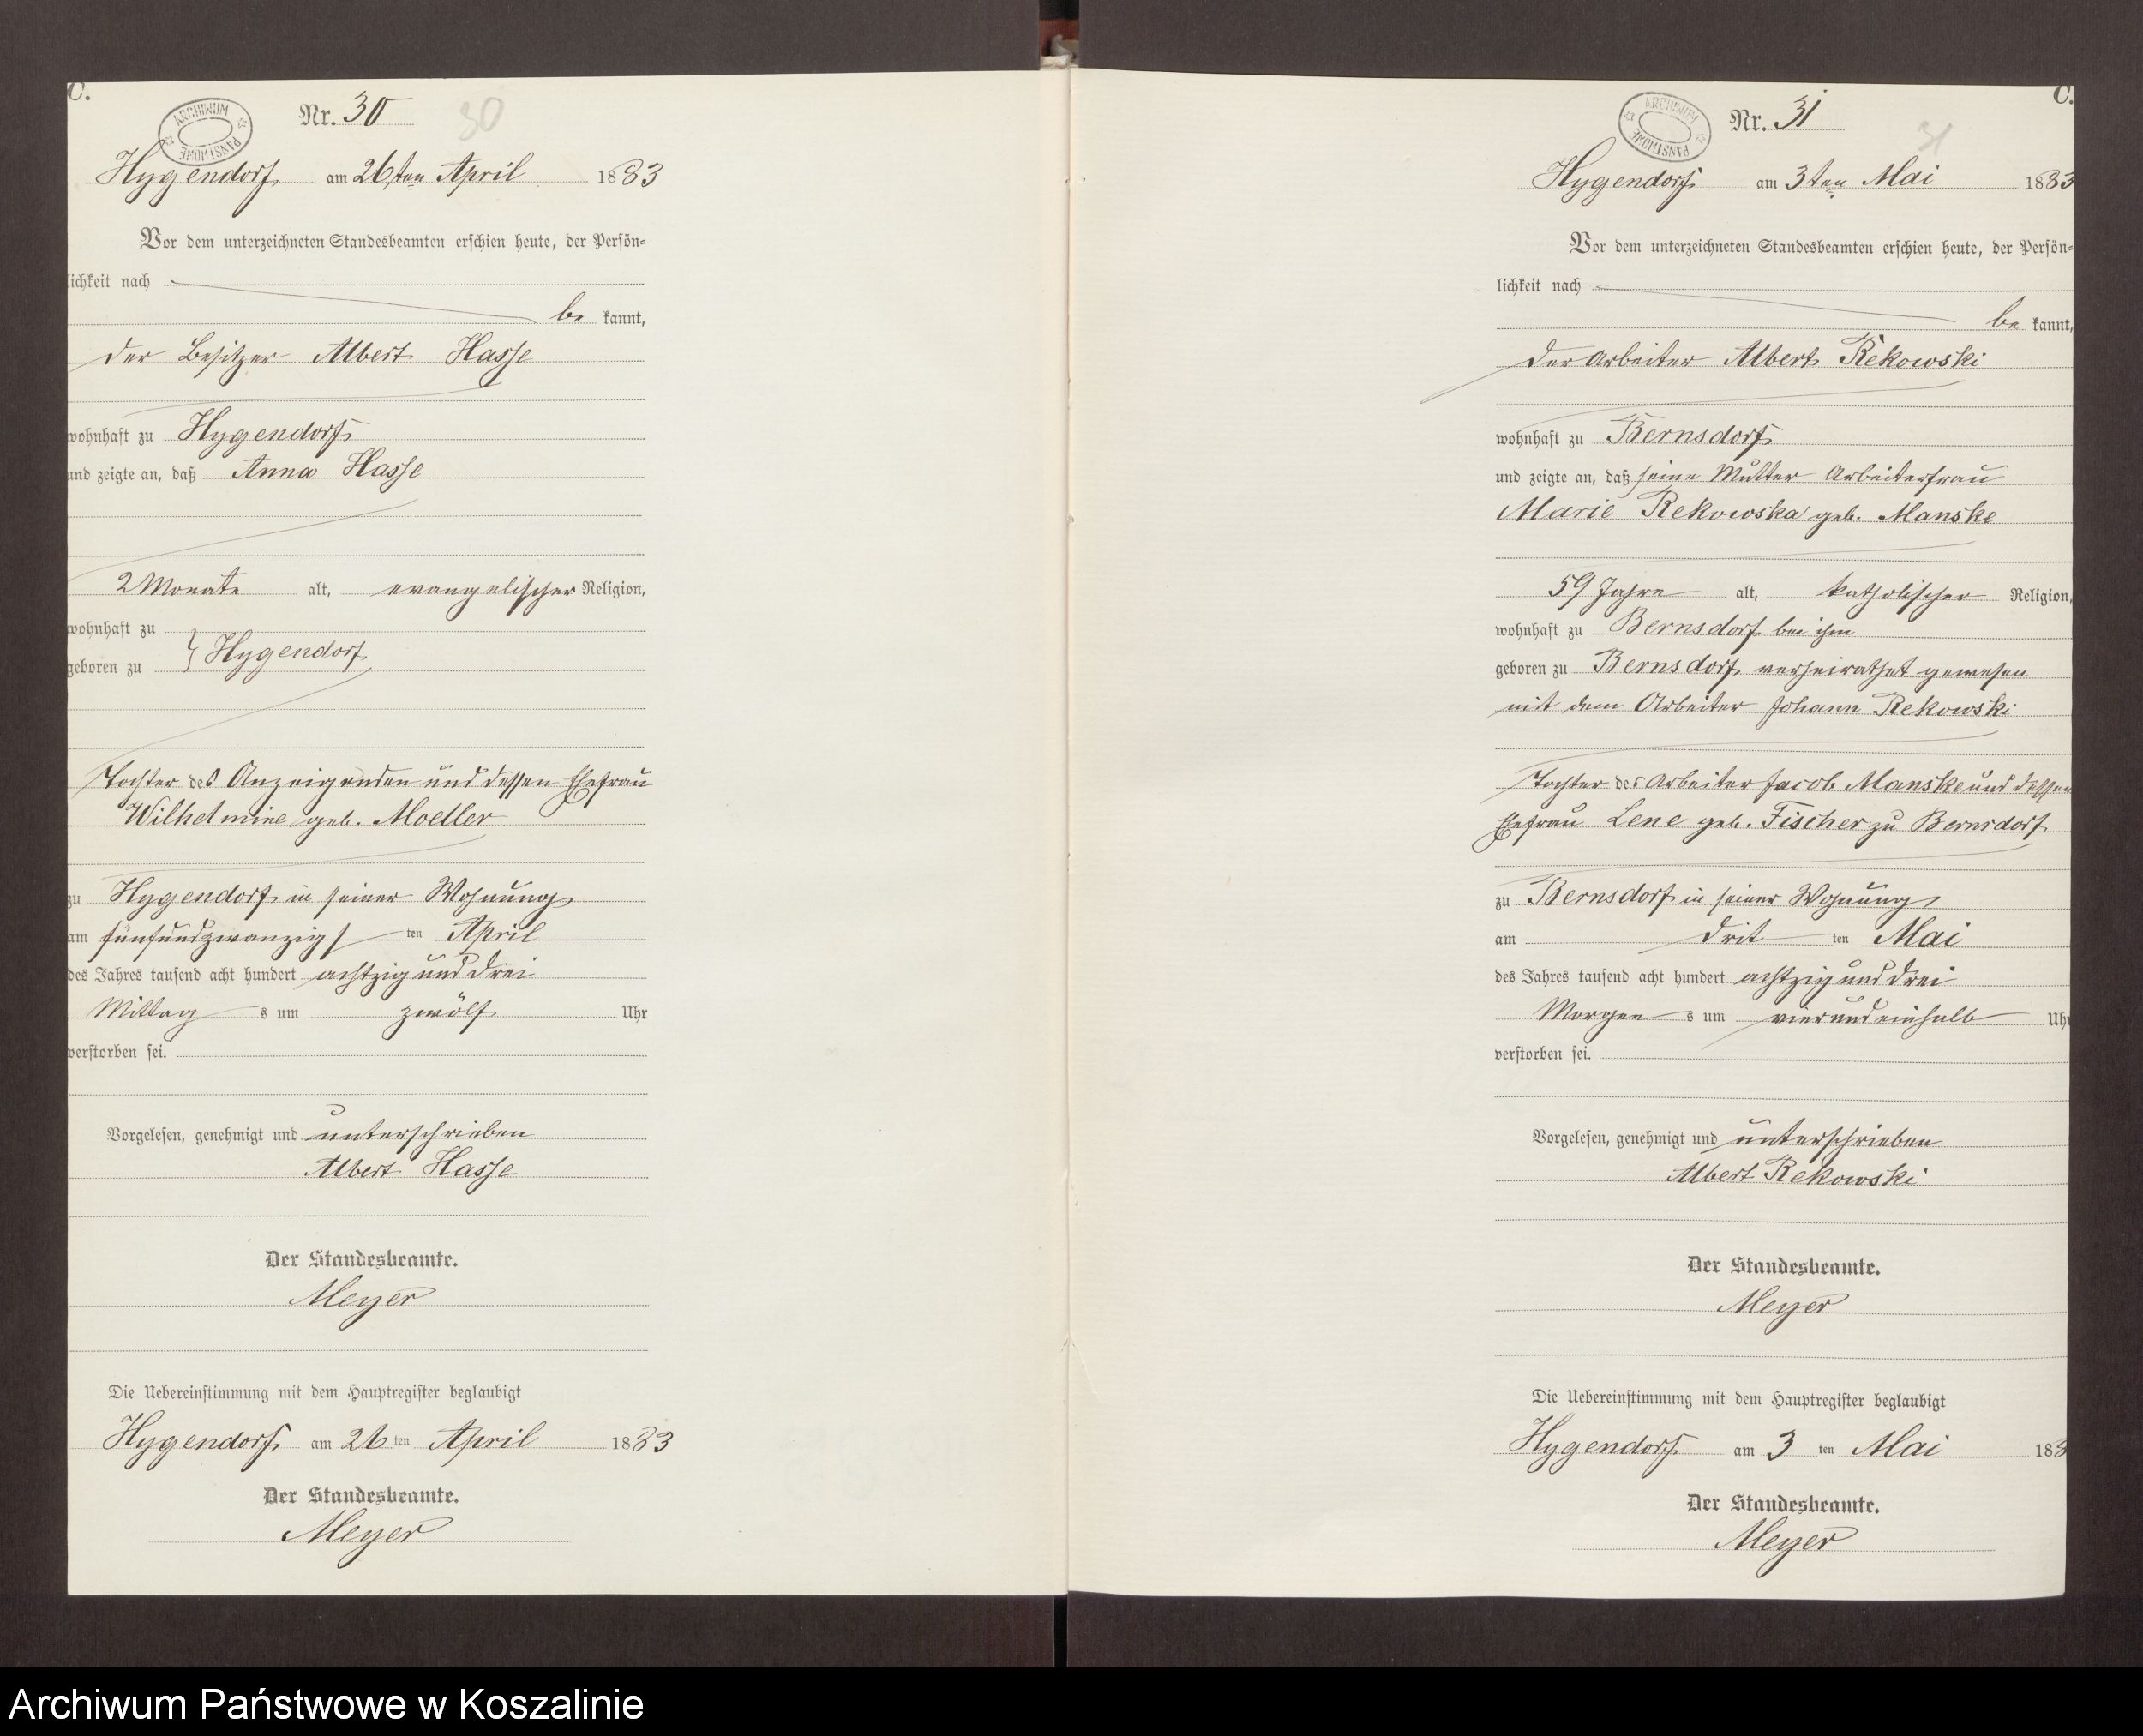 C.
ARCHIWUM PAŃSTWOWE
Nr. 30
30
Hygendorf am 26ten April 1883
Vor dem unterzeichneten Standesbeamten erschien heute, der Persön-
lichkeit nach
be kannt,
der Besitzer Albert Hasse
wohnhaft zu Hygendorf
und zeigte an, daß Anna Hasse
2 Monate alt, evangelischer Religion,
wohnhaft zu
geboren zu } Hygendorf
Tochter des Anzeigenden und dessen Ehefrau
Wilhelmine geb. Moeller
zu Hygendorf in seiner Wohnung
am fünfundzwanzigs ten April
des Jahres tausend acht hundert achtzig und drei
Mittag s um zwölf Uhr
verstorben sei.
Vorgelesen, genehmigt und unterschrieben
Albert Hasse
Der Standesbeamte.
Meyer
Die Uebereinstimmung mit dem Hauptregister beglaubigt
Hygendorf am 26 ten April 1883
Der Standesbeamte.
Meyer
C.
ARCHIWUM PAŃSTWOWE
Nr. 31
31
Hygendorf am 3ten Mai 1883
Vor dem unterzeichneten Standesbeamten erschien heute, der Persön-
lichkeit nach
be kannt,
der Arbeiter Albert Rekowski
wohnhaft zu Bernsdorf
und zeigte an, daß seine Mutter Arbeiterfrau
Marie Rekowska geb. Manske
59 Jahre alt, katholischer Religion,
wohnhaft zu Bernsdorf bei ihm
geboren zu Bernsdorf verheirathet gewesen
mit dem Arbeiter Johann Rekowski
Tochter des Arbeiter Jacob Manske und dessen
Ehefrau Lene geb. Fischer zu Bernsdorf
zu Bernsdorf in seiner Wohnung
am drit ten Mai
des Jahres tausend acht hundert achtzig und drei
Morgen s um vier und einhalb Uhr
verstorben sei.
Vorgelesen, genehmigt und unterschrieben
Albert Rekowski
Der Standesbeamte.
Meyer
Die Uebereinstimmung mit dem Hauptregister beglaubigt
Hygendorf am 3 ten Mai 188
Der Standesbeamte.
Meyer
Archiwum Państwowe w Koszalinie